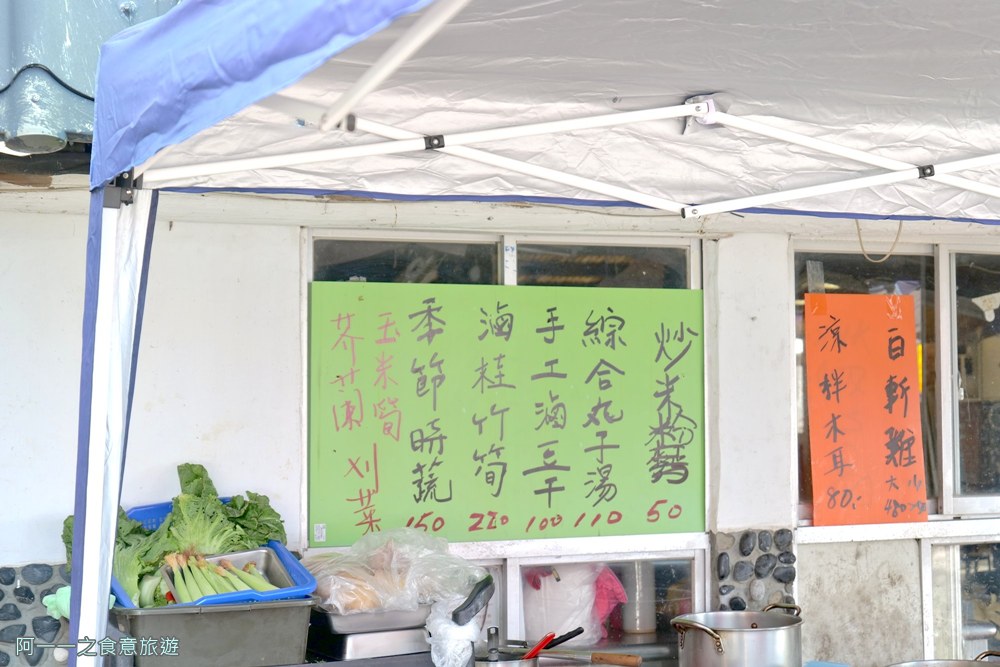 炒米粉麵
50
綜合丸子湯
110
手工滷豆干
100
滷桂竹筍
220
季節時蔬
150
玉米筍
芥蘭
刈菜
白斬雞
大 小
涼拌木耳
80.
阿一一之食意旅遊